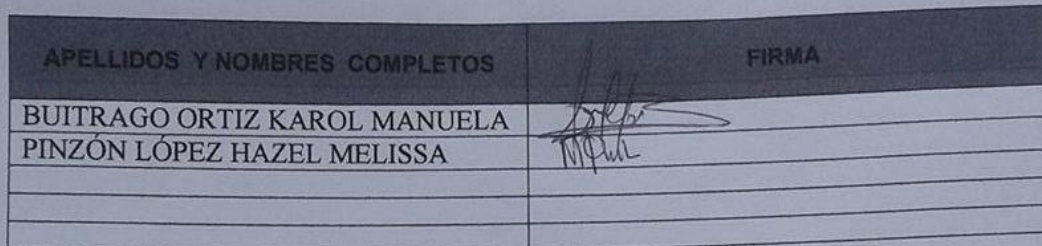 APELLIDOS Y NOMBRES COMPLETOS FIRMA
BUITRAGO ORTIZ KAROL MANUELA
PINZÓN LÓPEZ HAZEL MELISSA